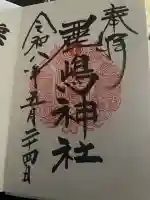 奉拝
嚴嶋神社
令和八年五月二十四日